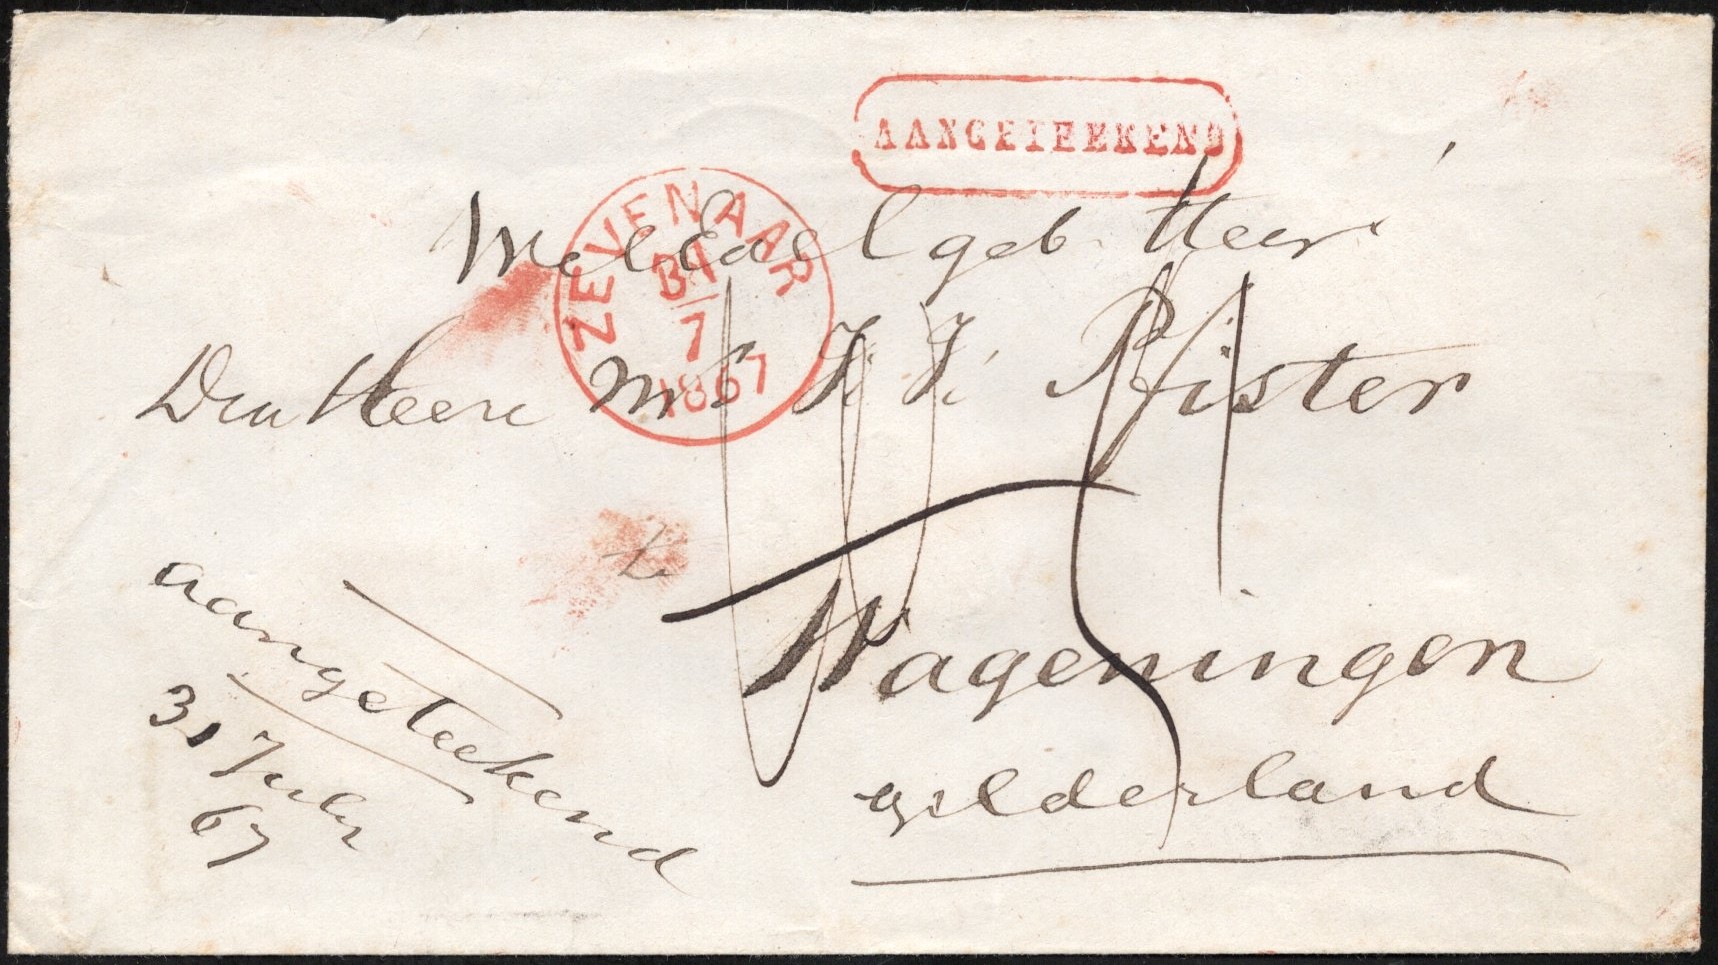 AANGETEEKEND
ZEVENAAR
31
7
1867
WelEdelgeb Heer
Den Heere Mr
Pfister
te
Wageningen
gelderland
aangeteekend
31 July
67